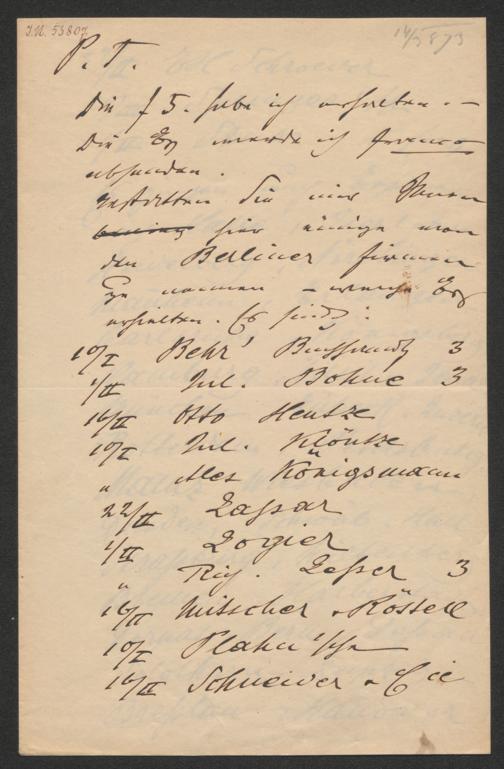 J.N. 53807
14/5 873
P. T.
Die f 5. habe ich erhalten. –
Die Ex werde ich franco
absenden.
Gestatten Sie mir Ihnen
hier einige von
den Berliner Firmen
zu nennen – welche Ex
erhielten. Es sind:
10/I Behr' Buchhandlg 3
1/II Jul. Bohne 3
16/II Otto Hentze
10/I Jul. Klönne
" Alex Königsmann
22/II Lassar
1/II Logier
" Rich. Lesser 3
16/II Mitscher & Röstell
10/I Plahn
16/II Schneider & Cie